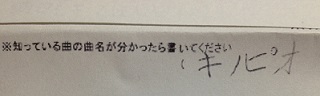 ※知っている曲の曲名が分かったら書いてください
(キノピオ